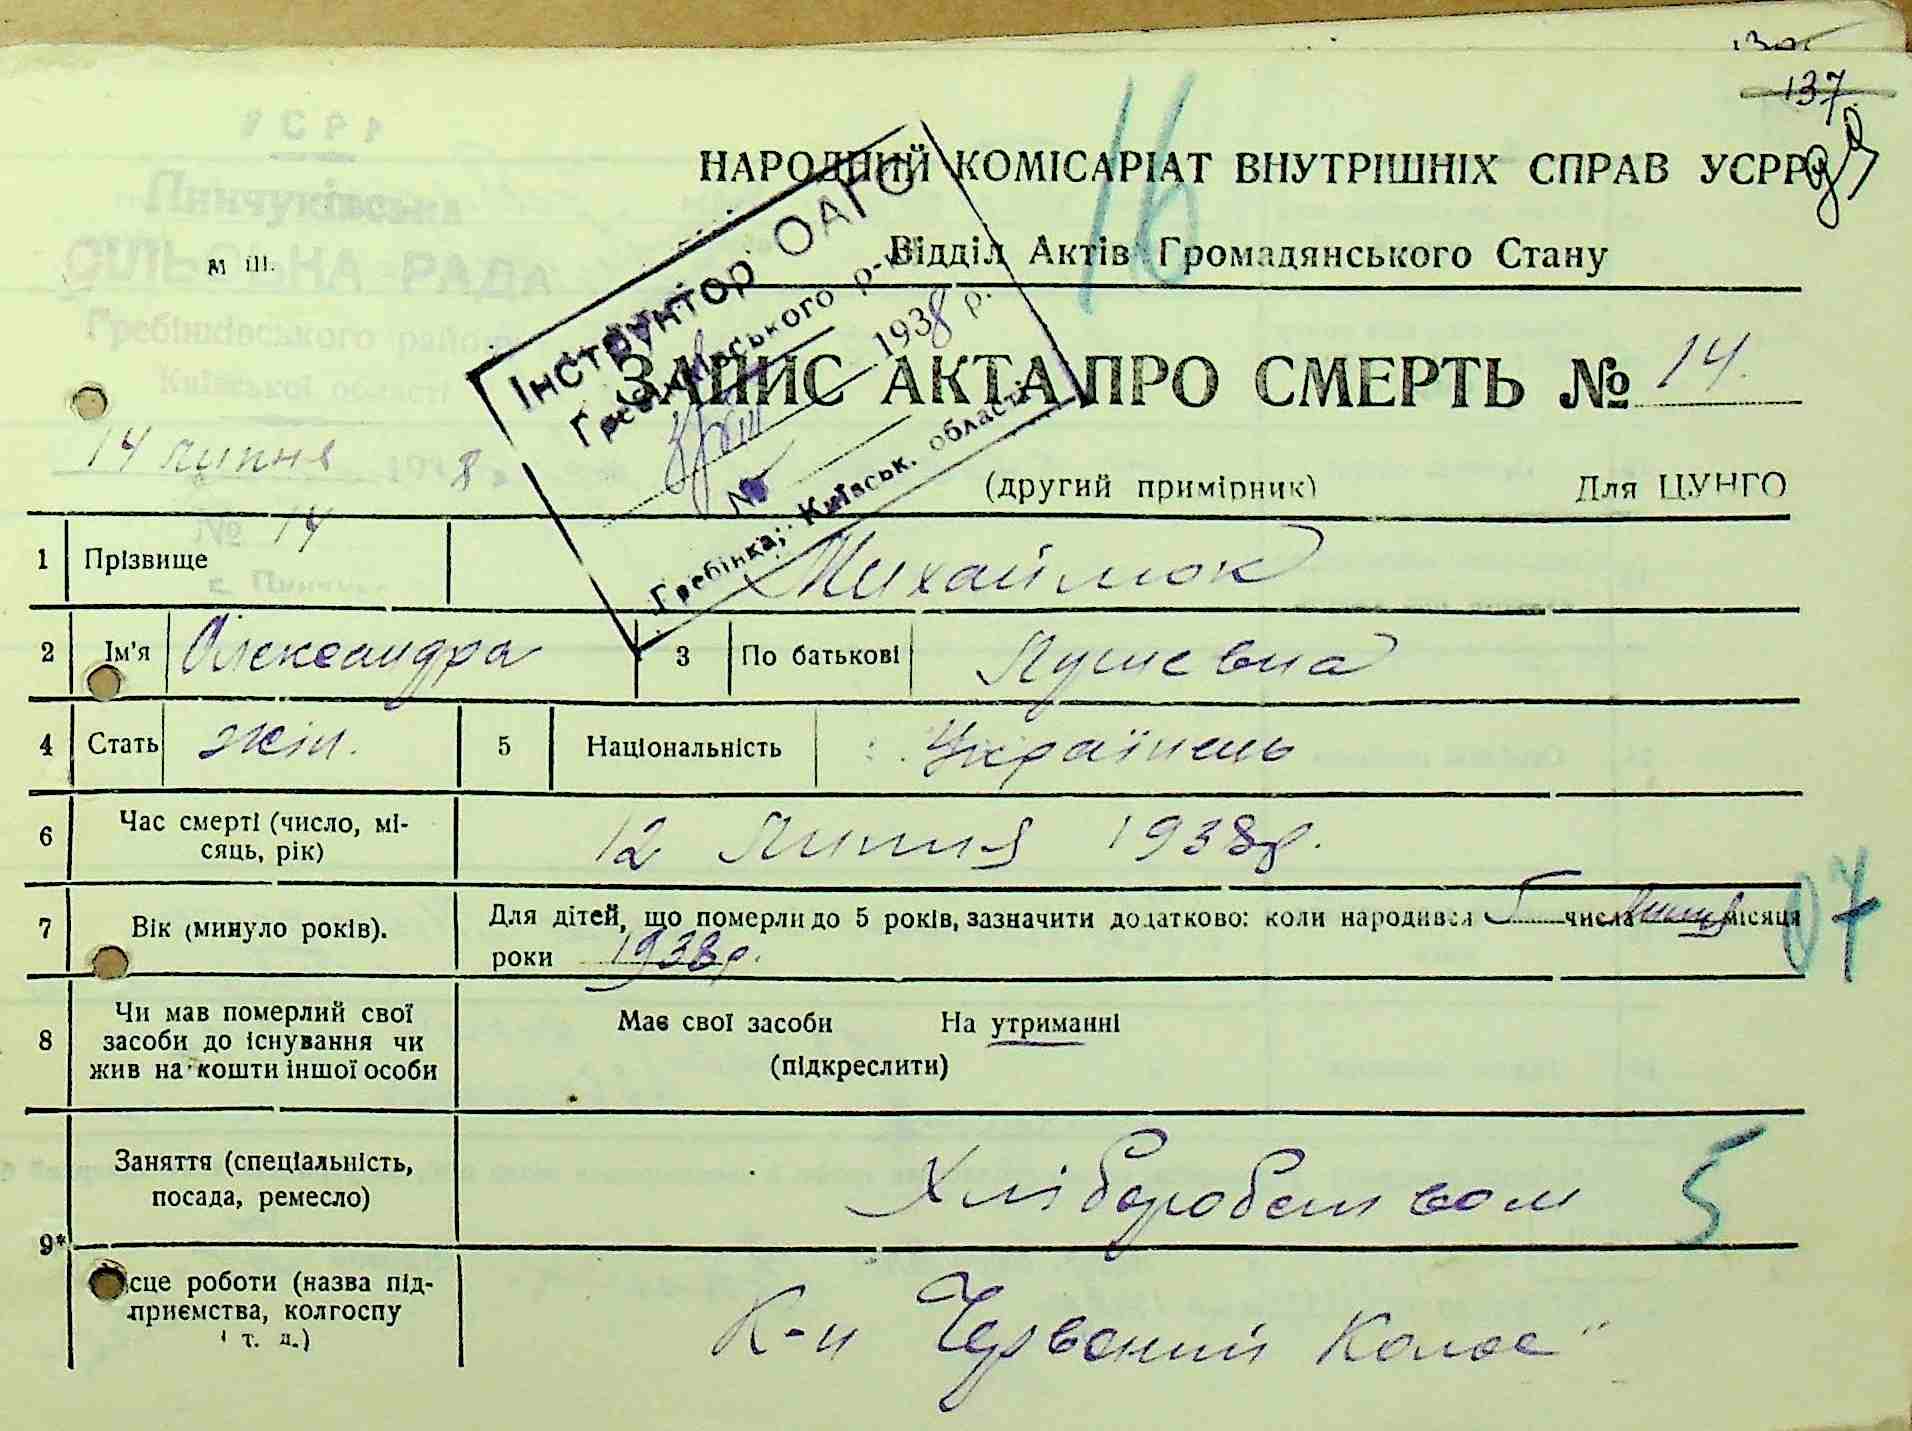 137
НАРОДНИЙ КОМІСАРІАТ ВНУТРІШНІХ СПРАВ УСРР
16
Відділ Актів Громадянського Стану
УСРР
Пинчуківська
СІЛЬСЬКА РАДА
Гребінківського району
Київської області
14 липня 1938 р.
№ 14
с. Пинчуки
Інструктор ОАГС
Гребінківського р-ну
1938 р.
№
Гребінка, Київськ. області
ЗАПИС АКТА ПРО СМЕРТЬ № 14.
(другий примірник) Для ЦУНГО
1 Прізвище Михаймюк
2 Ім'я Олександра 3 По батькові
4 Стать жін. 5 Національність Українець
6 Час смерті (число, мі-
сяць, рік) 12 Липня 1938р.
7 Вік (минуло років). Для дітей, що померли до 5 років, зазначити додатково: коли народився 5 числа Липня місяця
роки 1938р.
07
8 Чи мав померлий свої
засоби до існування чи
жив на кошти іншої особи
Має свої засоби На утриманні
(підкреслити)
9* Заняття (спеціальність,
посада, ремесло) Хліборобством 5
сце роботи (назва під-
приємства, колгоспу
і т. д.) К-п Червоний Колос"